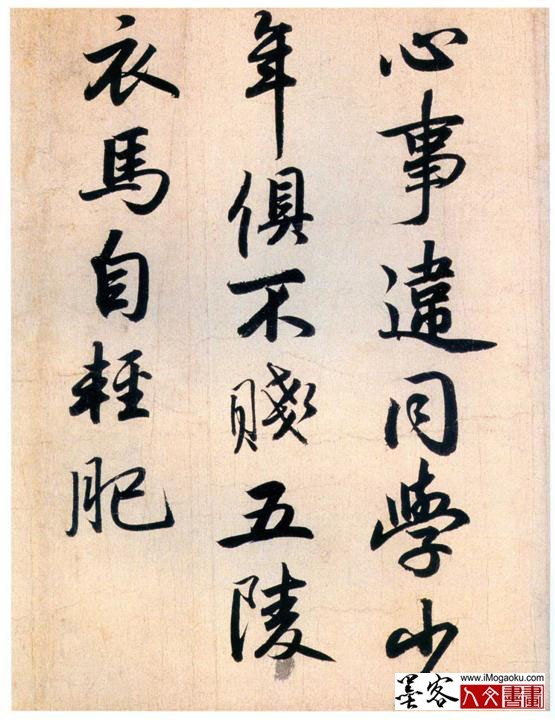 心事違同學少
年俱不賤五陵
衣馬自輕肥
www.iMogaoku.com
墨客人文書畫